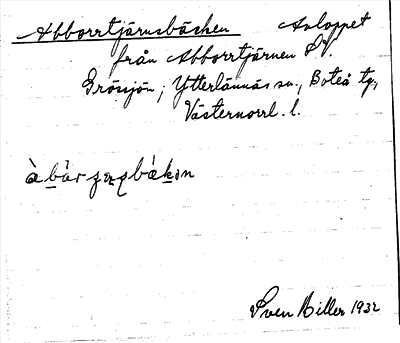 Abborrtjärnsbäcken Avloppet
från Abborrtjärnen S.V.
Grössjön; Ytterlännäs sn., Boteå tg.,
Västernorrl. l.
Sven Biller 1932